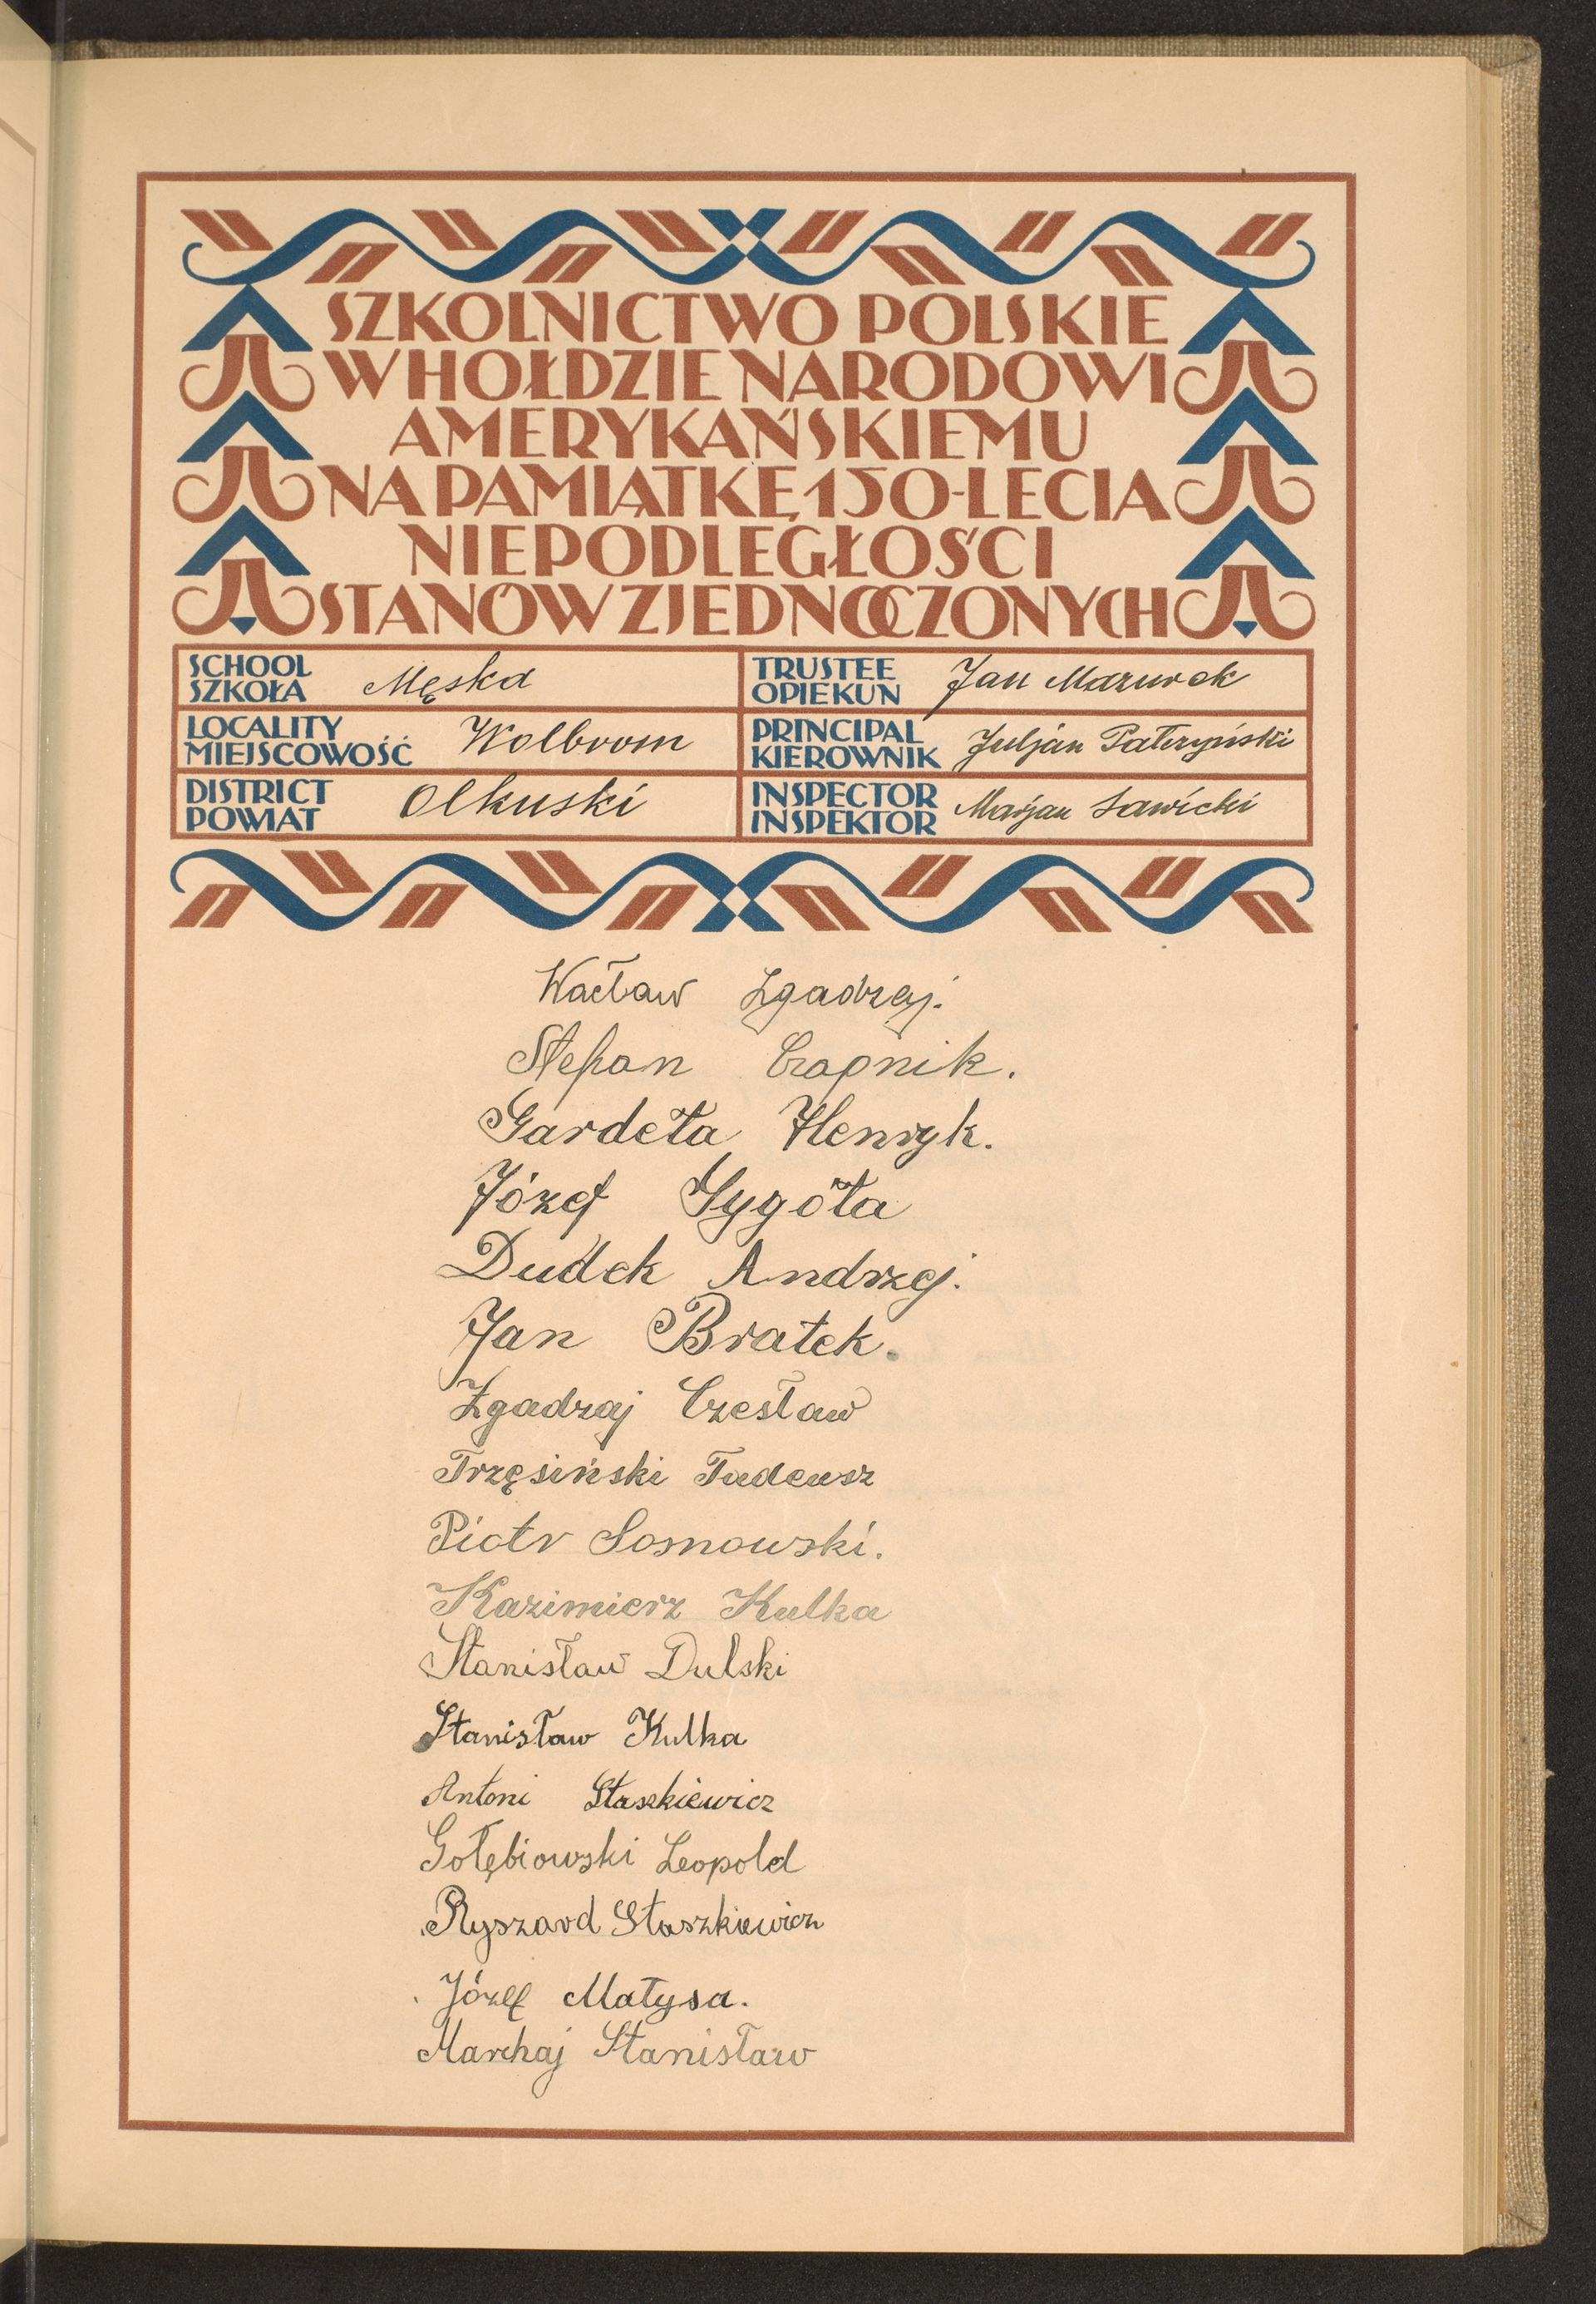 SZKOLNICTWO POLSKIE
W HOŁDZIE NARODOWI
AMERYKAŃSKIEMU
NA PAMIĄTKĘ 150-LECIA
NIEPODLEGŁOŚCI
STANÓW ZJEDNOCZONYCH
SCHOOL
SZKOŁA Męska
TRUSTEE
OPIEKUN Jan Mazurek
LOCALITY
MIEJSCOWOŚĆ Wolbrom
PRINCIPAL
KIEROWNIK Juljan Patrzyński
DISTRICT
POWIAT Olkuski
INSPECTOR
INSPEKTOR Marjan Sawicki
Wacław Zgadzaj.
Stefan Czapnik.
Gardeła Henryk.
Józef Sygóła
Dudek Andrzej.
Jan Bratek.
Zgadzaj Czesław
Trzęsiński Tadeusz
Piotr Sosnowski.
Kazimierz Kulka
Stanisław Dulski
Stanisław Kulka
Antoni Staszkiewicz
Gołębiowski Leopold
Ryszard Staszkiewicz
Józef Małysa.
Marchaj Stanisław